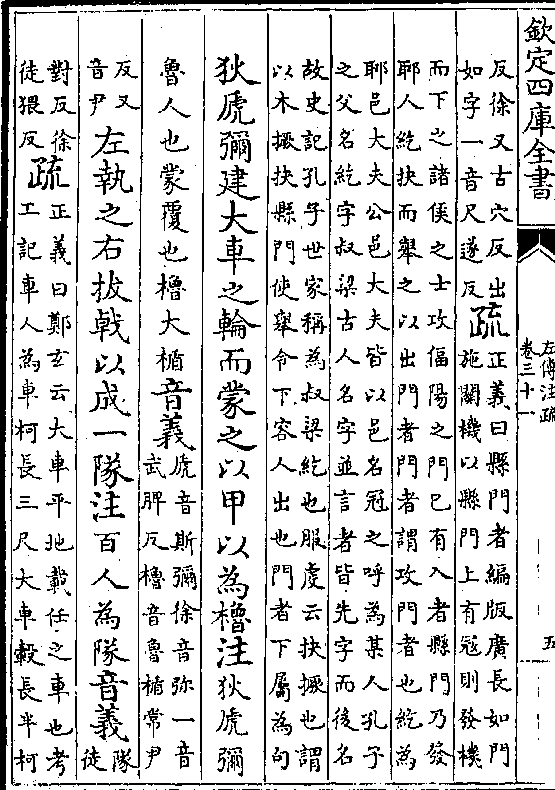 欽定四庫全書
左傳注疏
卷三十一
五
反徐又古穴反出
如字一音尺遂反
疏
正義曰縣門者編版廣長如門
施關機以縣門上有冦則發機
而下之諸侯之士攻偪陽之門已有入者縣門乃發
耶人紇抉而舉之以出門者門者謂攻門者也紇為
耶邑大夫公邑大夫皆以邑名冠之呼為某人孔子
之父名紇字叔梁古人名字並言者皆先字而後名
故史記孔子世家稱為叔梁紇也服虔云抉撅也謂
以木撅抉縣門使舉令下容人出也門者下屬為句
狄虒彌建大車之輪而蒙之以甲以為櫓注狄虒彌
魯人也蒙覆也櫓大楯音義
虒音斯彌徐音弥一音
武脾反櫓音魯楯常尹
反又
音尹
左執之右拔戟以成一隊注百人為隊音義
隊
徒
對反徐
徒猥反
疏
正義曰鄭玄云大車平地載任之車也考
工記車人為車柯長三尺大車轂長半柯